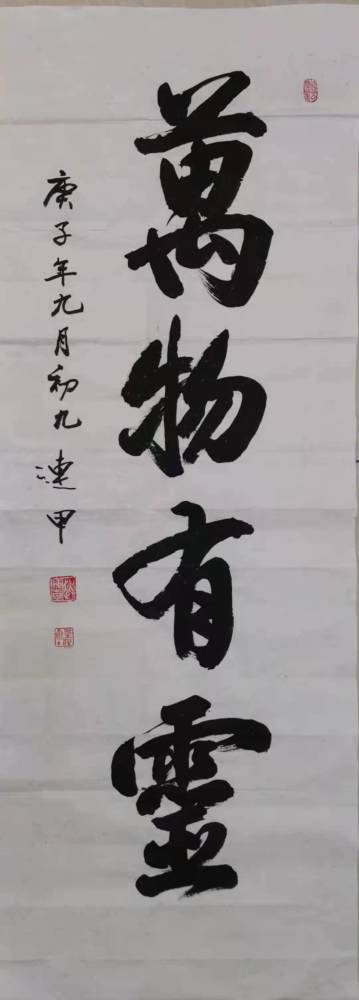 萬物有靈
庚子年九月初九 連甲